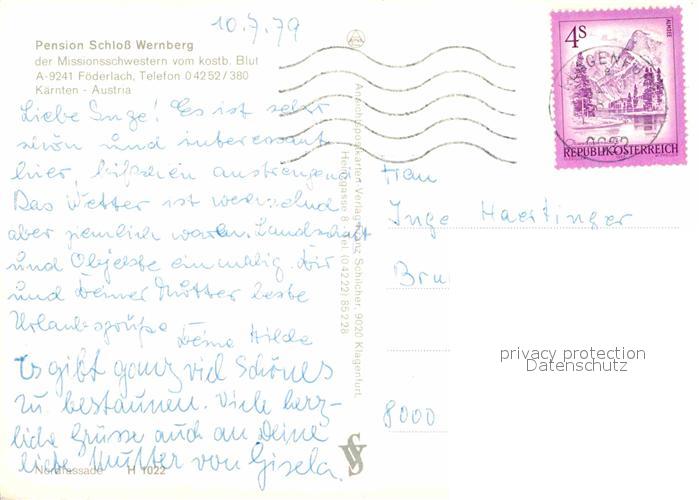 10.7.79
Pension Schloß Wernberg
der Missionsschwestern vom kostb. Blut
A-9241 Föderlach, Telefon 04252/380
Kärnten - Austria
Liebe Inge! Es ist sehr
schön und interessant
hier, bißchen anstrengend
Das Wetter ist wechselnd
aber ziemlich warm. Landschaft
und Objekte einmalig. Dir
und Deiner Mutter beste
Urlaubsgrüße Deine Hilde
Es gibt ganz viel Schönes
zu bestaunen. Viele herz-
liche Grüsse auch an Deine
liebe Mutter von Gisela.
Nordfassade H 1022
Ansichtspostkarten-Verlag Franz Schilcher, 9020 Klagenfurt,
8, Tel. (04222) 85228
4S
ALMSEE
REPUBLIK ÖSTERREICH
Frau
Inge Haertinger
8000
privacy protection
Datenschutz